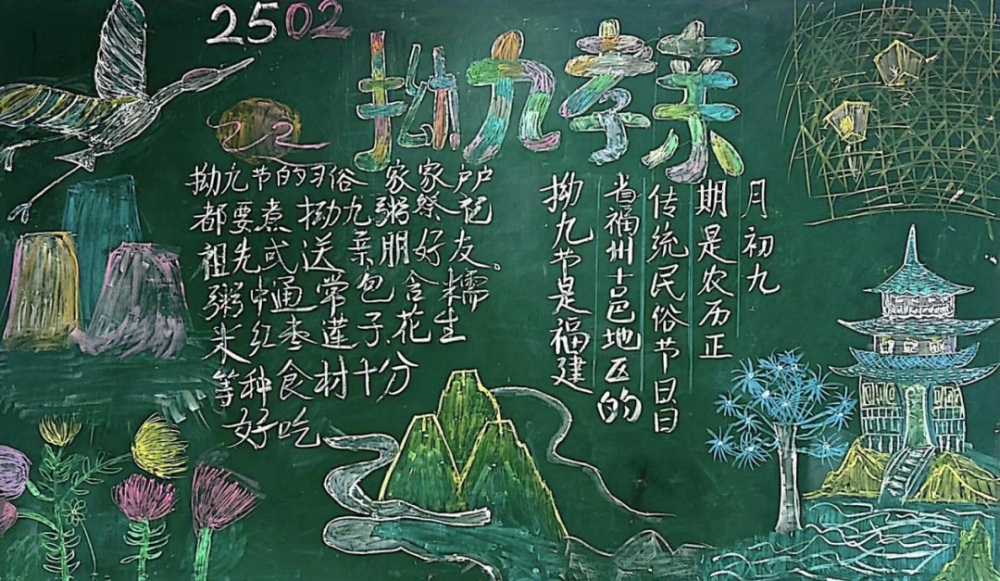 2502
拗九孝亲
拗九节的习俗 家家户户
都要煮拗九粥祭祀
祖先或送亲朋好友。
粥中通常包含糯
米红枣莲子花生
等种食材十分
好吃
拗九节是福建
省福州十邑地区的
传统民俗节日日
期是农历正
月初九